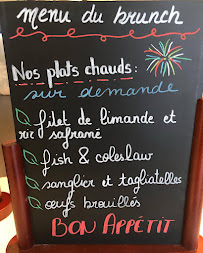 Menu du brunch
Nos plats chauds :
sur demande
filet de limande et
riz safrané
fish & coleslaw
sanglier et tagliatelles
œufs brouillés
BON APPÉTIT